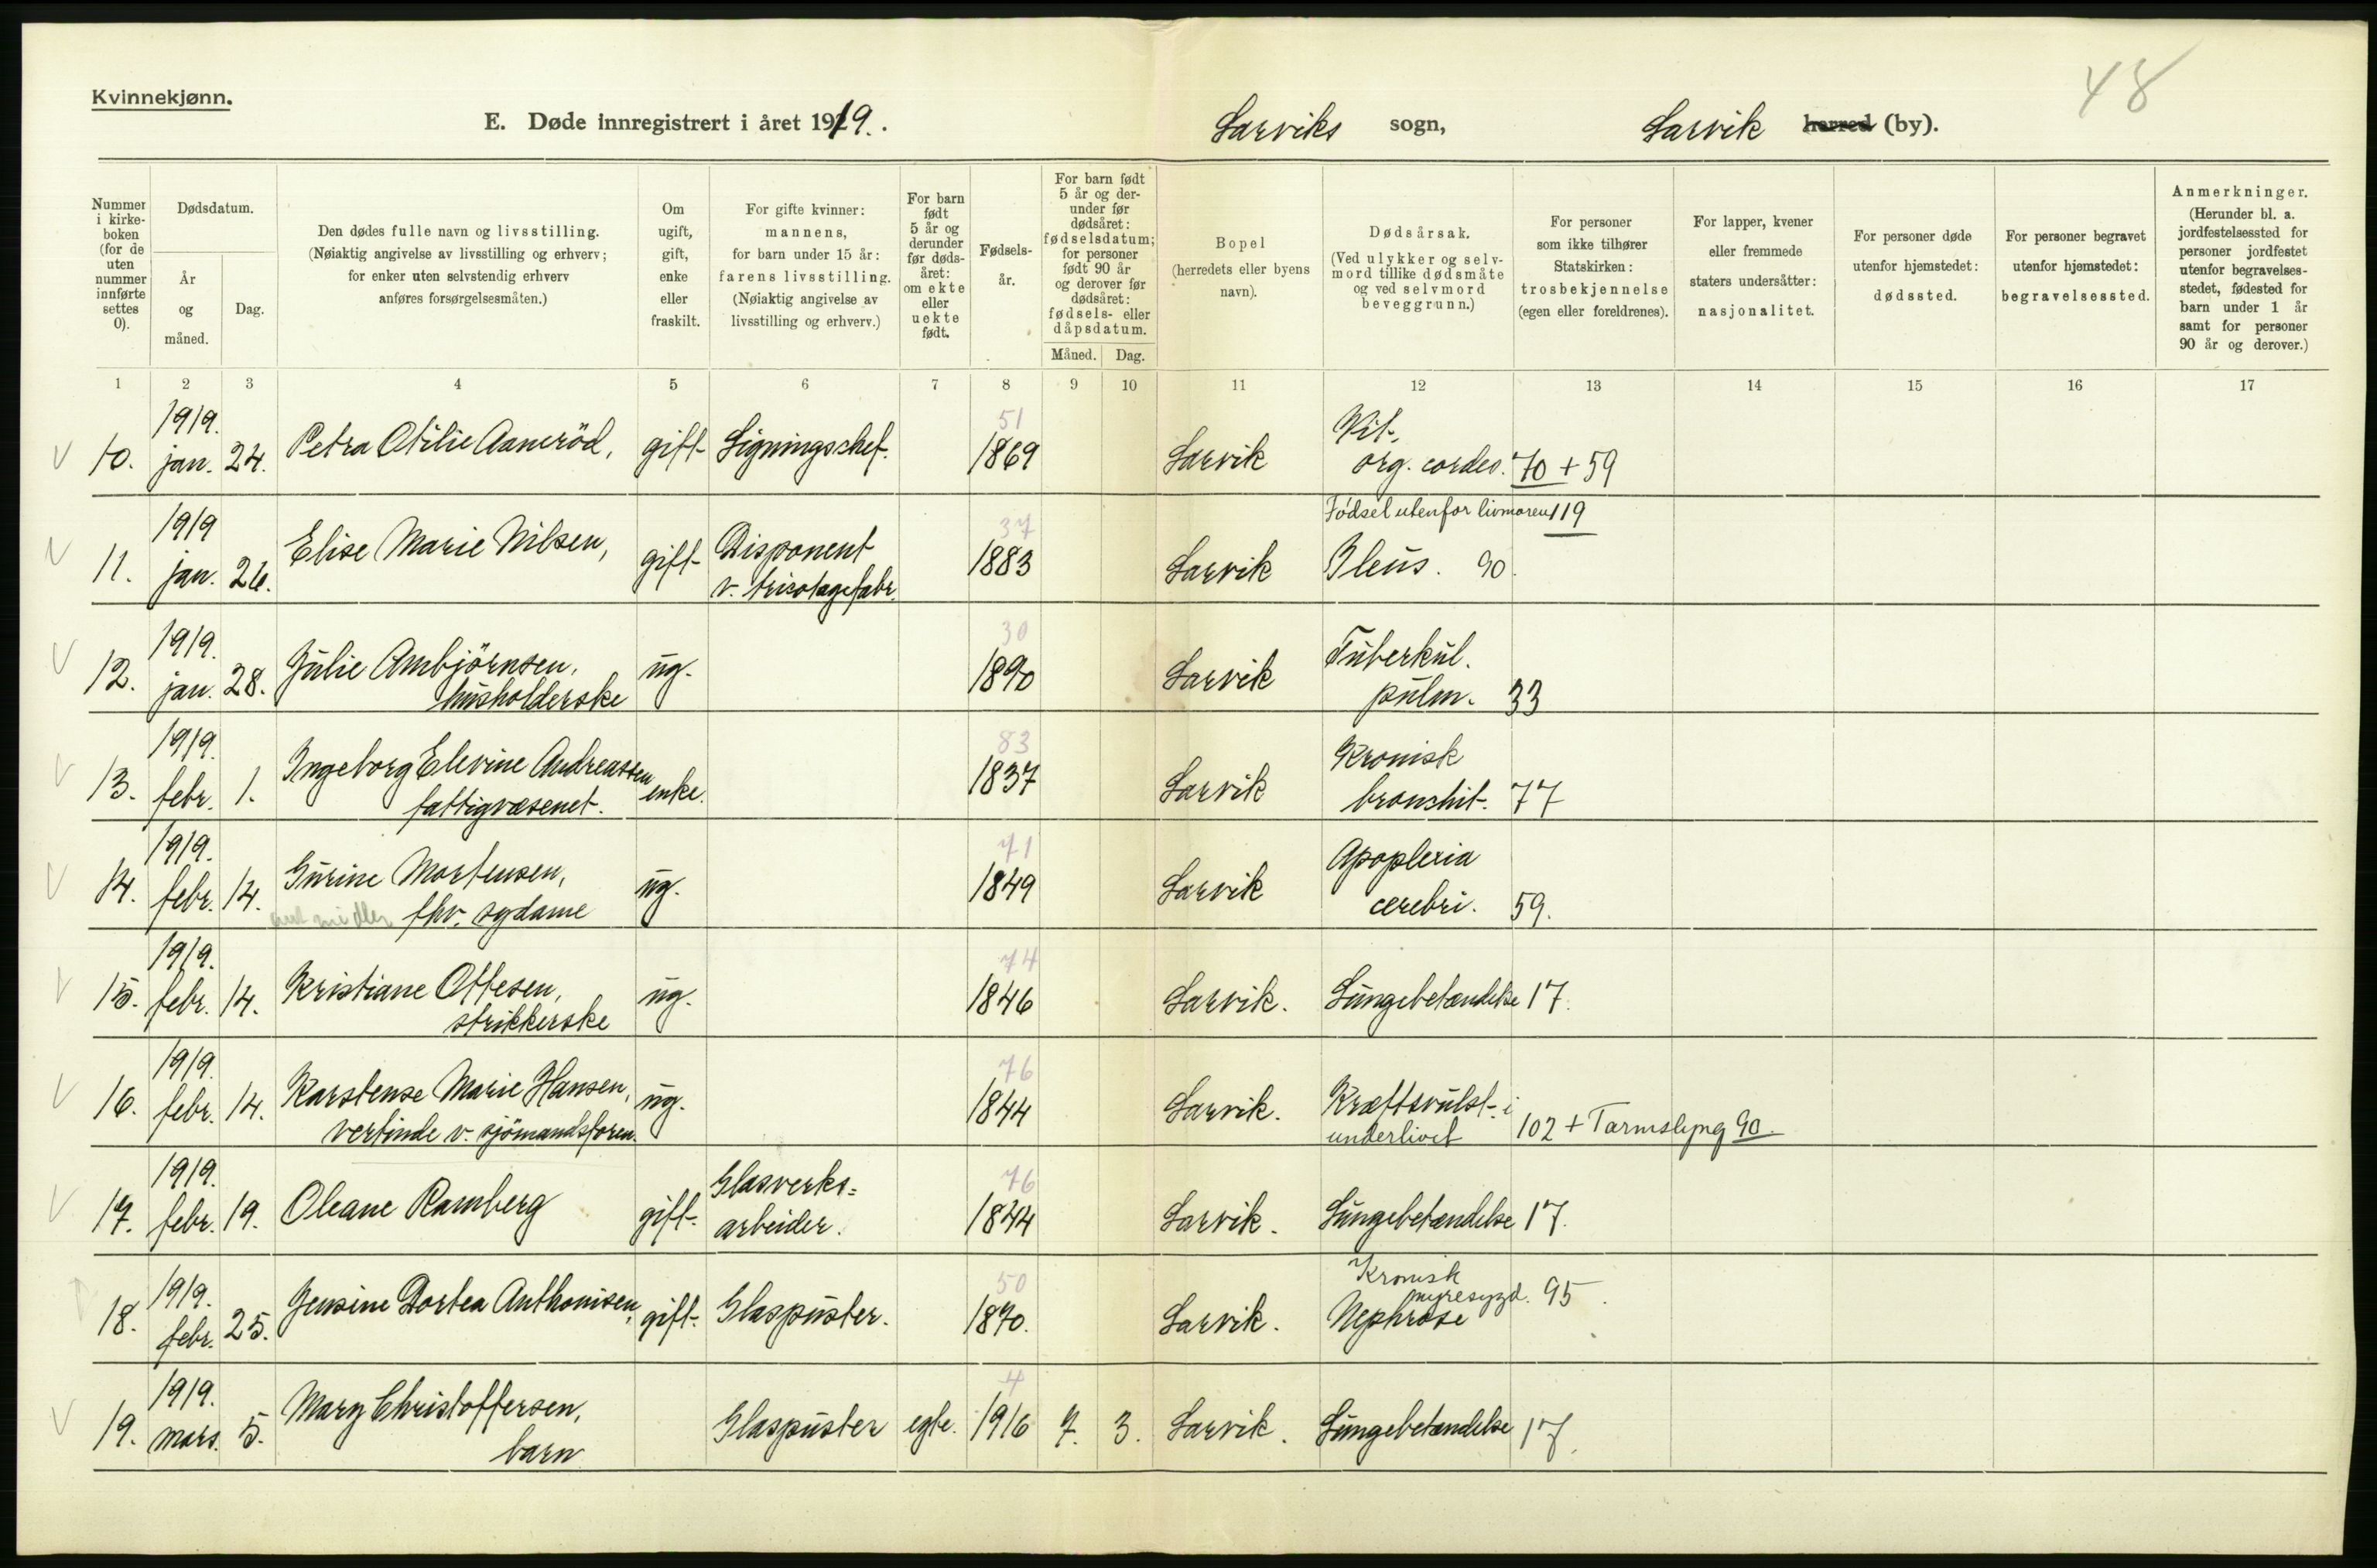 48
Kvinnekjønn.
E. Døde innregistrert i året 1919. Larviks sogn, Larvik herred (by).
Nummer i kirke-boken (for de uten nummer innførte settes 0).
Dødsdatum.
År og måned.
Dag.
Den dødes fulle navn og livsstilling.
(Nøiaktig angivelse av livsstilling og erhverv;
for enker uten selvstendig erhverv
anføres forsørgelsesmåten.)
Om ugift, gift, enke eller fraskilt.
For gifte kvinner:
mannens,
for barn under 15 år:
farens livsstilling.
(Nøiaktig angivelse av
livsstilling og erhverv.)
For barn født 5 år og derunder før døds-året: om ekte eller uekte født.
Fødsels-år.
For barn født 5 år og der-under før dødsåret: fødselsdatum; for personer født 90 år og derover før dødsåret: fødsels- eller dåpsdatum.
Måned. Dag.
Bopel
(herredets eller byens
navn).
Dødsårsak.
(Ved ulykker og selv-
mord tillike dødsmåte
og ved selvmord
beveggrunn.)
For personer
som ikke tilhører
Statskirken:
trosbekjennelse
(egen eller foreldrenes).
For lapper, kvener
eller fremmede
staters undersåtter:
nasjonalitet.
For personer døde
utenfor hjemstedet:
dødssted.
For personer begravet
utenfor hjemstedet:
begravelsessted.
Anmerkninger.
(Herunder bl. a.
jordfestelsessted for
personer jordfestet
utenfor begravelses-
stedet, fødested for
barn under 1 år
samt for personer
90 år og derover.)
1 2 3 4 5 6 7 8 9 10 11 12 13 14 15 16 17
1919. 51 Vit.
10. jan. 24. Petra Otilie Aamröd, gift Ligningschef. 1869 Larvik org. cordes. 70 + 59
1919 37 Födsel utenfor livmoren 119
11. jan. 26. Elise Marie Nilsen, gift Disponent 1883 Larvik Ileus. 90.
v. tricotagefabr.
1919. 30 Tuberkul.
12. jan. 28. Julie Ambjörnsen, ug. 1890 Larvik pulm. 33
husholderske
1919. 83 Kronisk
13. febr. 1. Ingeborg Elevine Andreassen enke. 1837 Larvik bronchit. 77
fattigvæsenet.
1919. 71 Apoplexia
14. febr. 14. Gurine Mortensen, ug. 1849 Larvik cerebri. 59.
fhv. sydame
1919. 74
15. febr. 14. Kristiane Ottesen, ug. 1846 Larvik. Lungebetændelse 17.
strikkerske
1919. 76
16. febr. 14. Karstense Marie Hansen, ug. 1844 Larvik. Kræftsvulst i
vertinde v. sjömandsforen. underlivet 102 + Tarmslyng 90.
1919. Glasverks= 76
17. febr. 19. Oleane Ramberg gift. arbeider. 1844 Larvik. Lungebetændelse 17.
1919. 50 Kronisk nyresygd. 95.
18. febr. 25. Jensine Dortea Anthonisen, gift. Glaspuster. 1870. Larvik. Nephrose
1919. 4
19. mars. 5. Mary Christoffersen, Glaspuster egte. 1916 7. 3. Larvik. Lungebetændelse 17.
barn